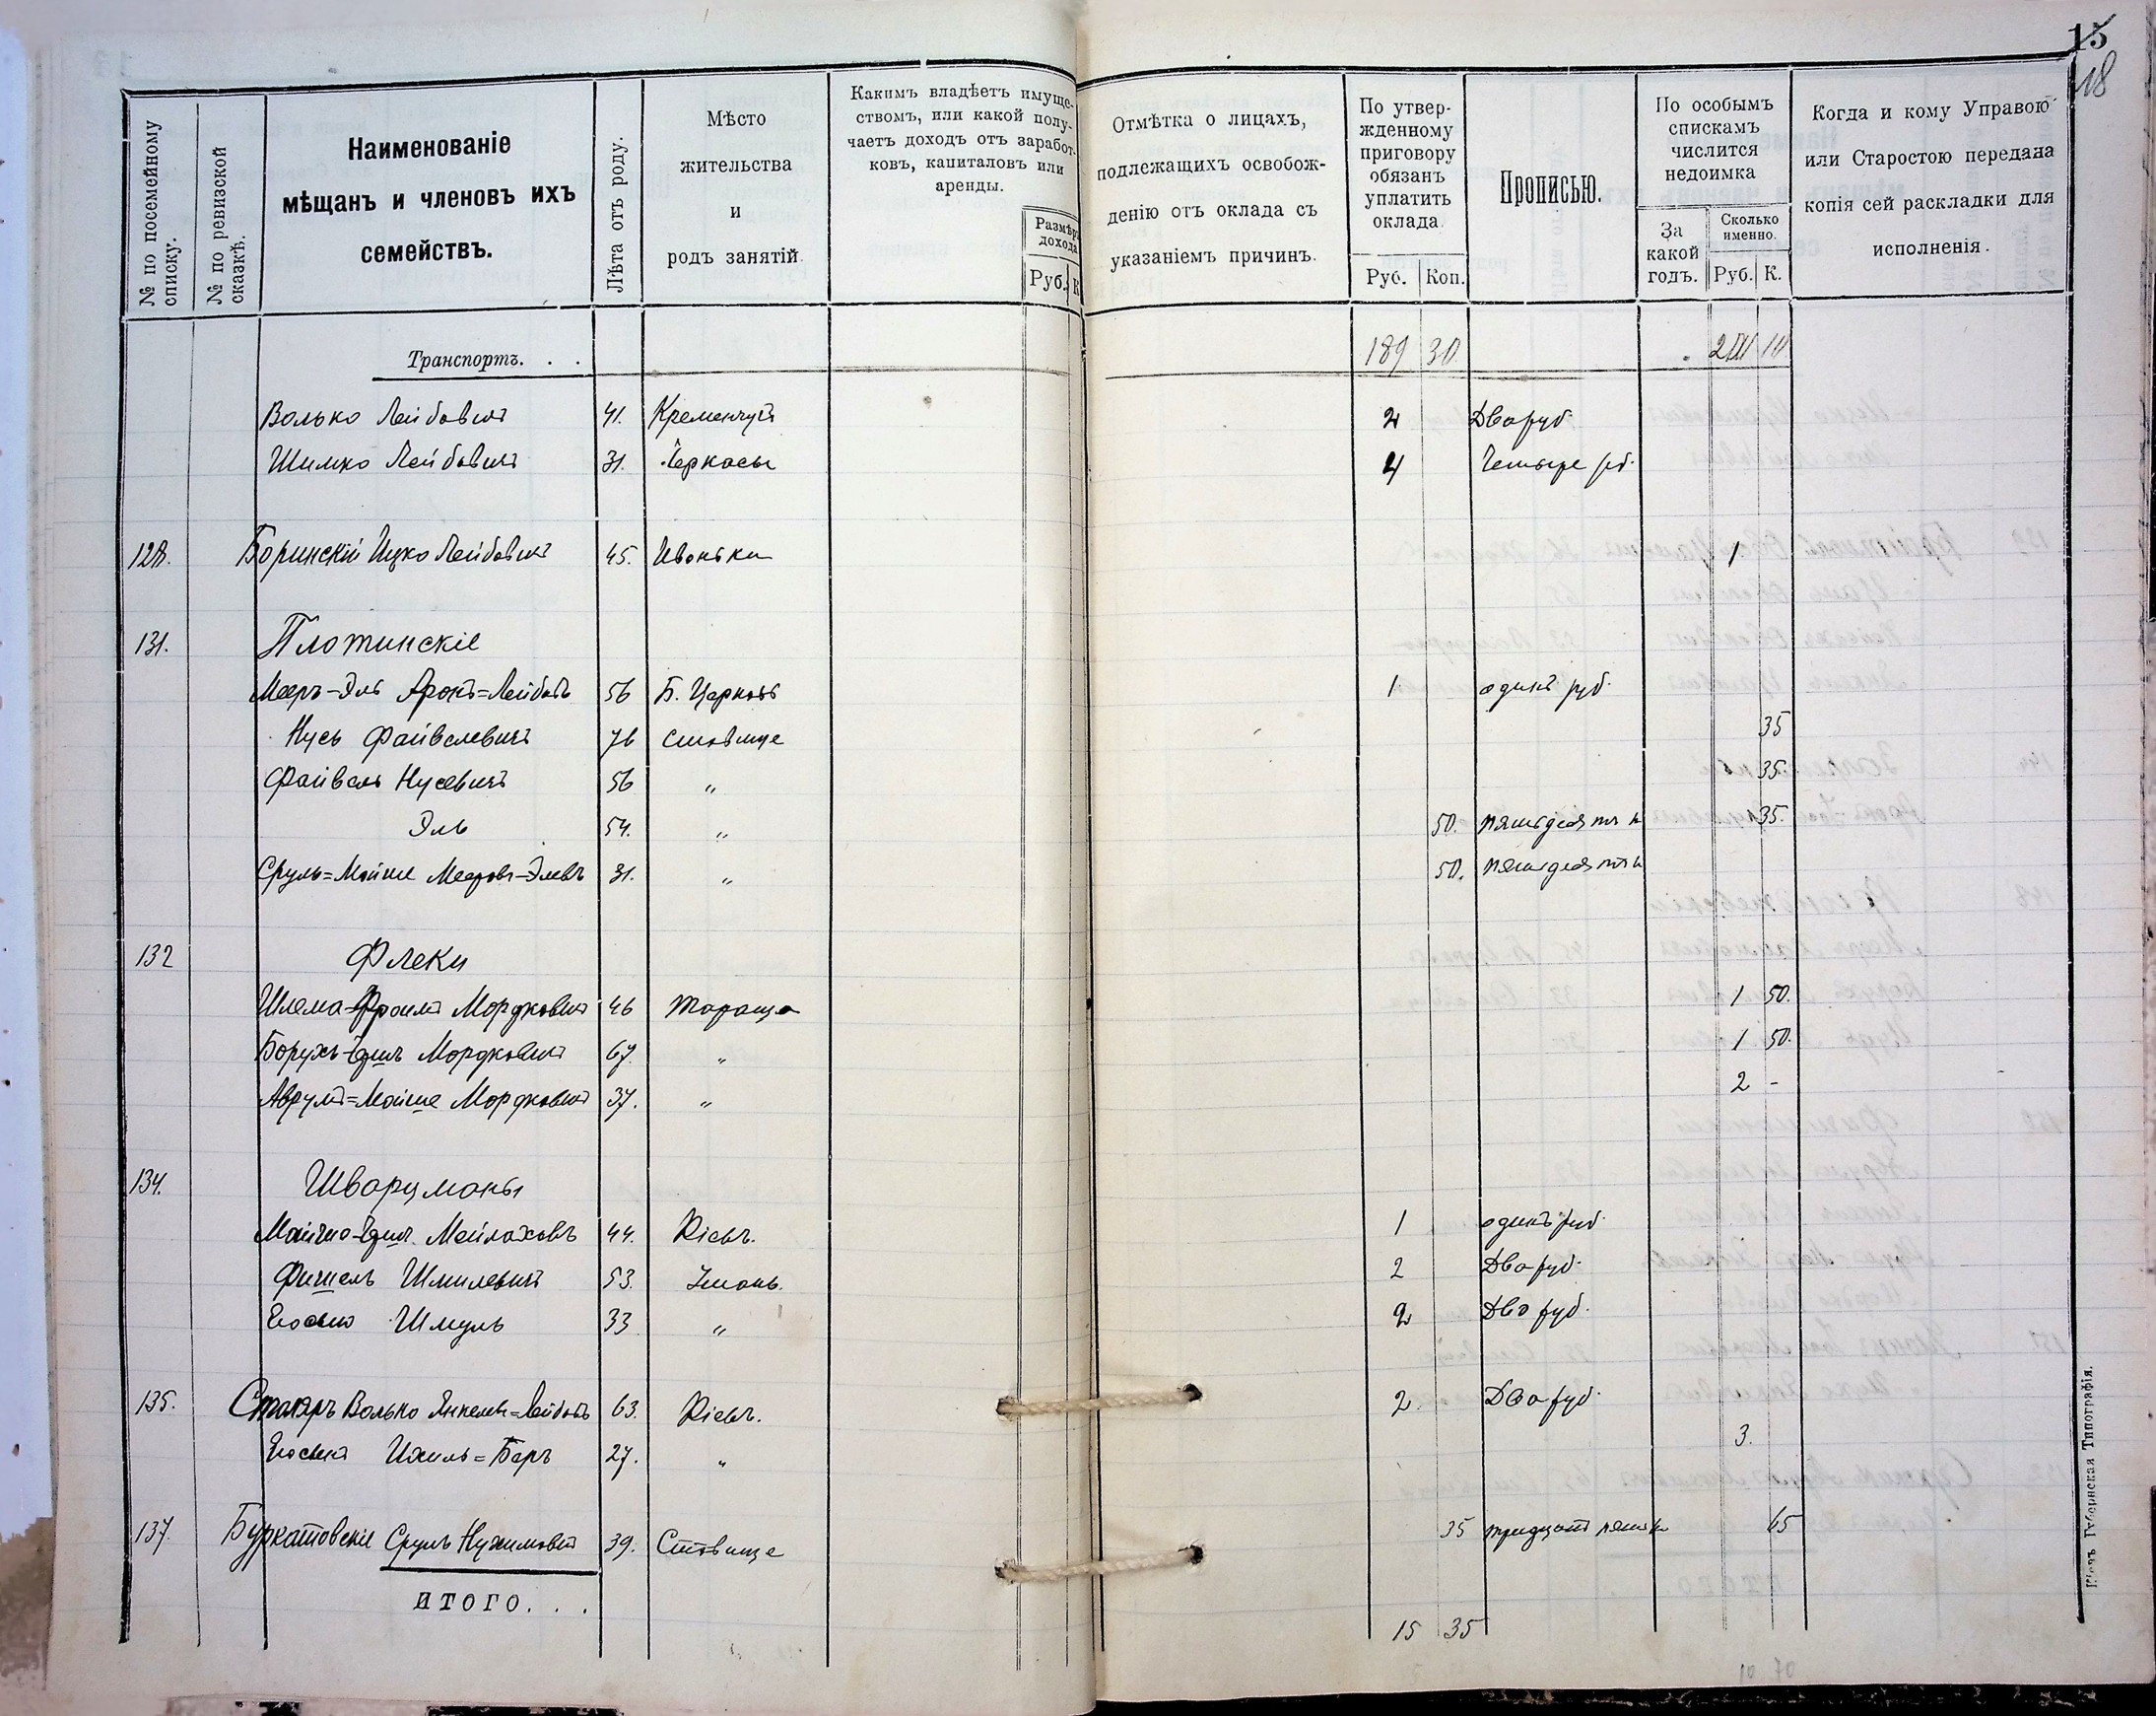 15
18
№ по посемейному списку.
№ по ревизской сказкѣ.
Наименованіе
мѣщанъ и членовъ ихъ
семействъ.
Лѣта отъ роду.
Мѣсто
жительства
и
родъ занятій.
Какимъ владѣетъ имуще-
ствомъ, или какой полу-
чаетъ доходъ отъ заработ-
ковъ, капиталовъ или
аренды.
Размѣръ
дохода
Руб. К
Отмѣтка о лицахъ,
подлежащихъ освобож-
денію отъ оклада съ
указаніемъ причинъ.
По утвер-
жденному
приговору
обязанъ
уплатить
оклада.
Руб. Коп.
Прописью.
По особымъ
спискамъ
числится
недоимка
За
какой
годъ.
Сколько
именно.
Руб. К.
Когда и кому Управою
или Старостою передана
копія сей раскладки для
исполненія.
Транспортъ. . . 189 30
Волько Лейбовичъ 41. Кременчугъ 2 Два руб.
Шимко Лейбовичъ 31. Черкасы 4 Четыре руб.
128. Боринскій Ицко Лейбовичъ 45. Иваньки 1
131. Плотинскіе
Мееръ-Эль Аронъ=Лейбовъ 56 Б. Церковь 1 одинъ руб.
Нусь Файвелевичъ 76 Ставище 35
Файвель Нусевичъ 56 " 35.
Эль 54. " 50. пятьдесятъ к 35.
Сруль=Мойше Мееровъ-Элевъ 31. " 50. пятьдесятъ к
132 Флеки
Шлема-Фроимъ Мордковичъ 46 Тараща 1 50.
Борухъ- Мордковичъ 67. " 1 50.
Аврумъ=Мойше Мордковичъ 37. " 2 -
134. Шварцманы
Мойше- Мейлаховъ 44. Кіевъ. 1 одинъ руб.
Фишель Шмилевичъ 53. Умань. 2 Два руб.
Іосько Шмуль 33 " 2 Два руб.
135. Столяръ Волько Янкель=Лейбовъ 63. Кіевъ. 2. Два руб.
Ихиль=Беръ 27. " 3.
137. Буркатовскіе Сруль Нухимовъ 39. Ставище 35 тридцать пять к 65
ИТОГО. . . 15 35
10 70
Кіевъ. Губернская Типографія.